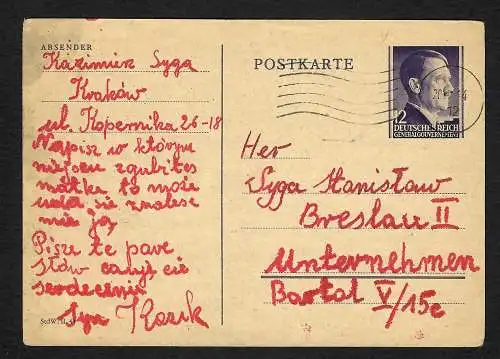 ABSENDER
Kazimierz Syga
Kraków
ul. Kopernika 26-18
Napisz w którym
miejscu zgubiłeś
matkę to może
uda się znaleść
mnie ją
Piszę te parę
słów całuję cię
serdecznie
Syn Kazik
POSTKARTE
12
DEUTSCHES REICH
GENERALGOUVERNEMENT
Her
Syga Stanisław
Breslau II
Unternehmen
Bartol V/15c